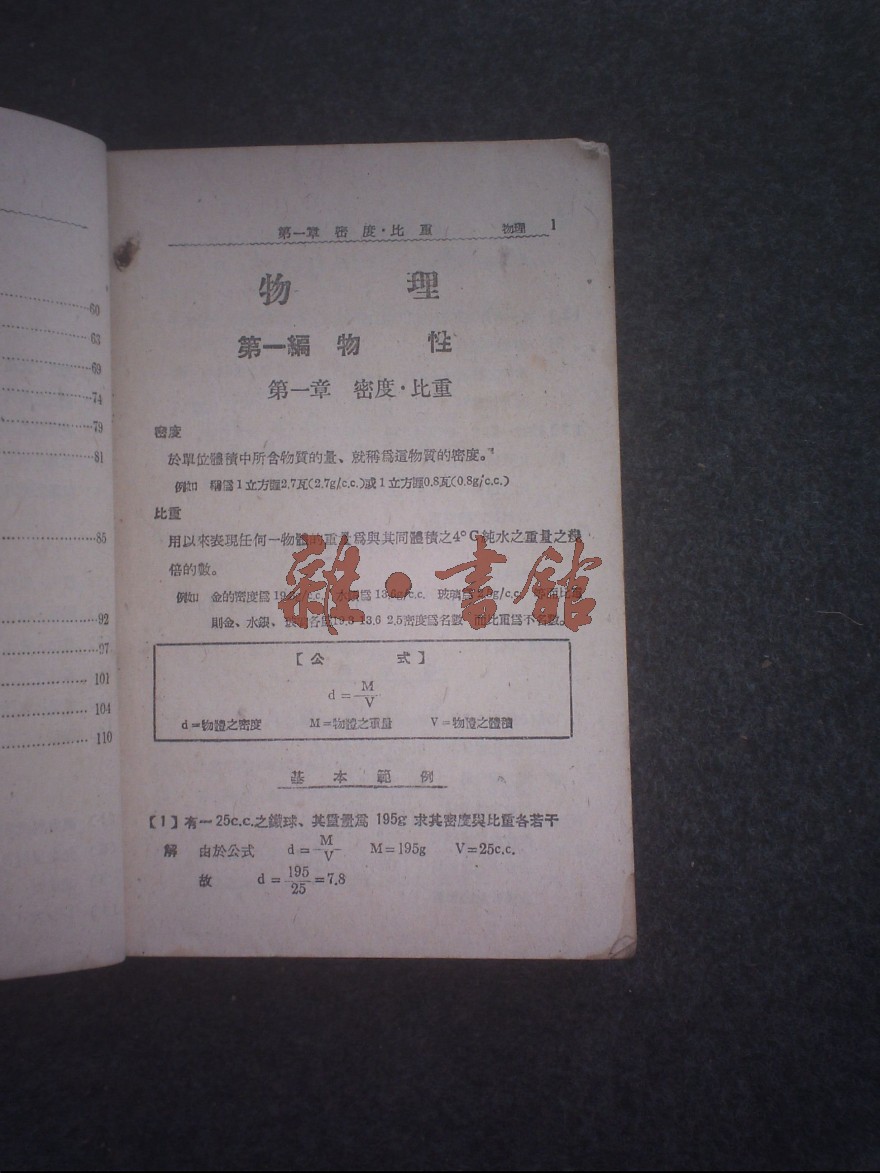 60
63
69
74
79
81
85
92
97
101
104
110
第一章 密 度·比 重 物理 1
物 理
第一編 物 性
第一章 密度·比重
密度
於單位體積中所含物質的量、就稱爲這物質的密度。
例如 稱爲1立方糎2.7瓦(2.7g/c.c.)或1立方糎0.8瓦(0.8g/c.c.)
比重
用以來表現任何一物體的重量爲與其同體積之4°C純水之重量之幾
倍的數。
例如 金的密度爲19.3g/c.c. 水銀爲13.6g/c.c. 玻璃爲2.5g/c.c.
則金、水銀、 各爲19.3 13.6 2.5密度爲名數 而比重爲不名數。
雜·書館
【公 式】
d=M/V
d=物體之密度 M=物體之重量 V=物體之體積
基 本 範 例
【1】有一25c.c.之鐵球、其重量爲 195g 求其密度與比重各若干
解 由於公式 d=M/V M=195g V=25c.c.
故 d=195/25=7.8